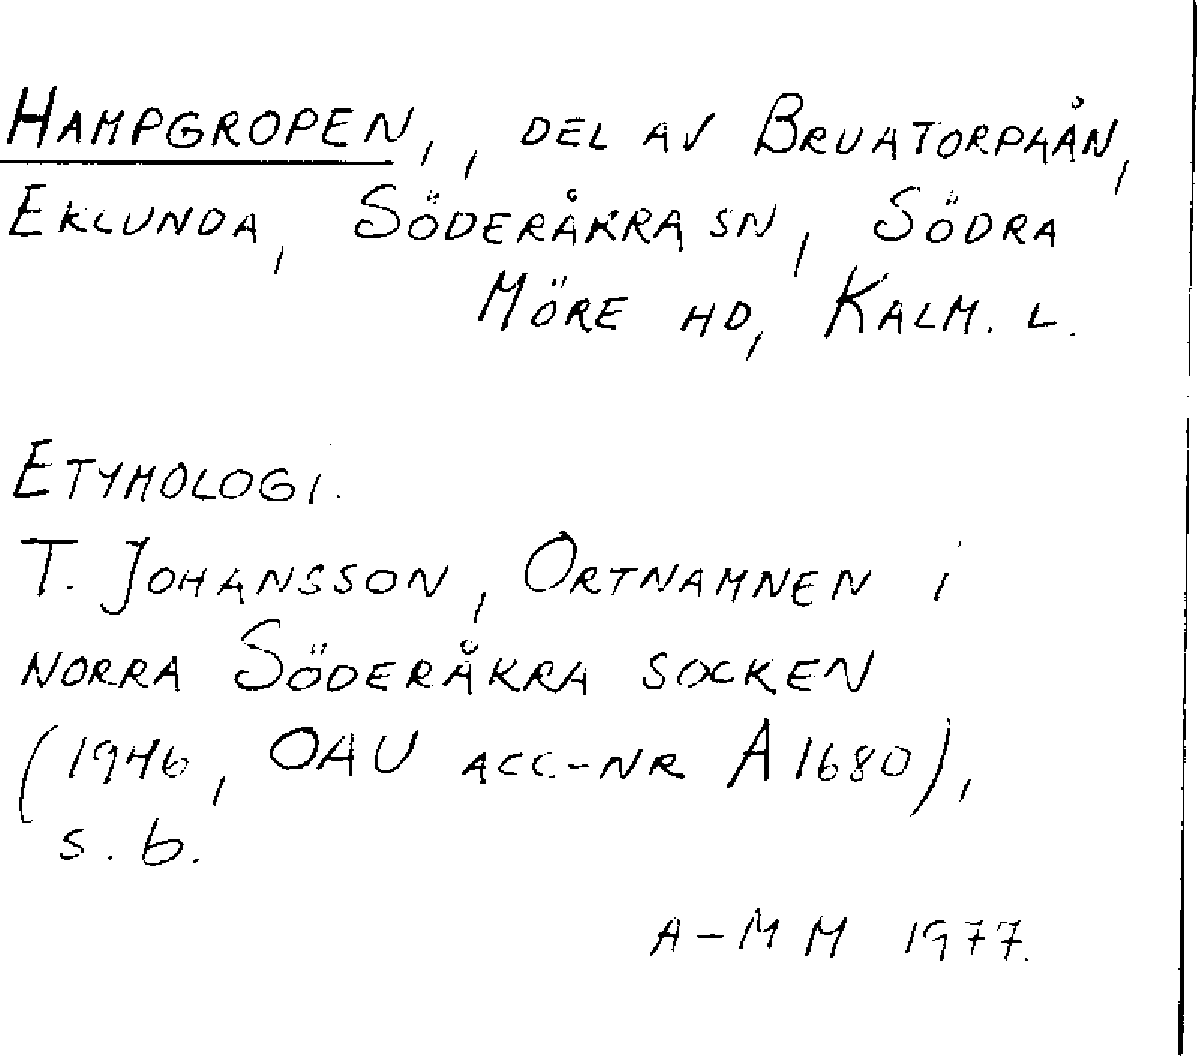 HAMPGROPEN,, DEL AV BRUATORPAÅN,
EKLUNDA, SÖDERÅKRA SN, SÖDRA
MÖRE HD, KALM. L.
ETYMOLOGI.
T. JOHANSSON, ORTNAMNEN I
NORRA SÖDERÅKRA SOCKEN
(1946, OAU ACC-NR A1680),
S. 6.
A-MM 1977.